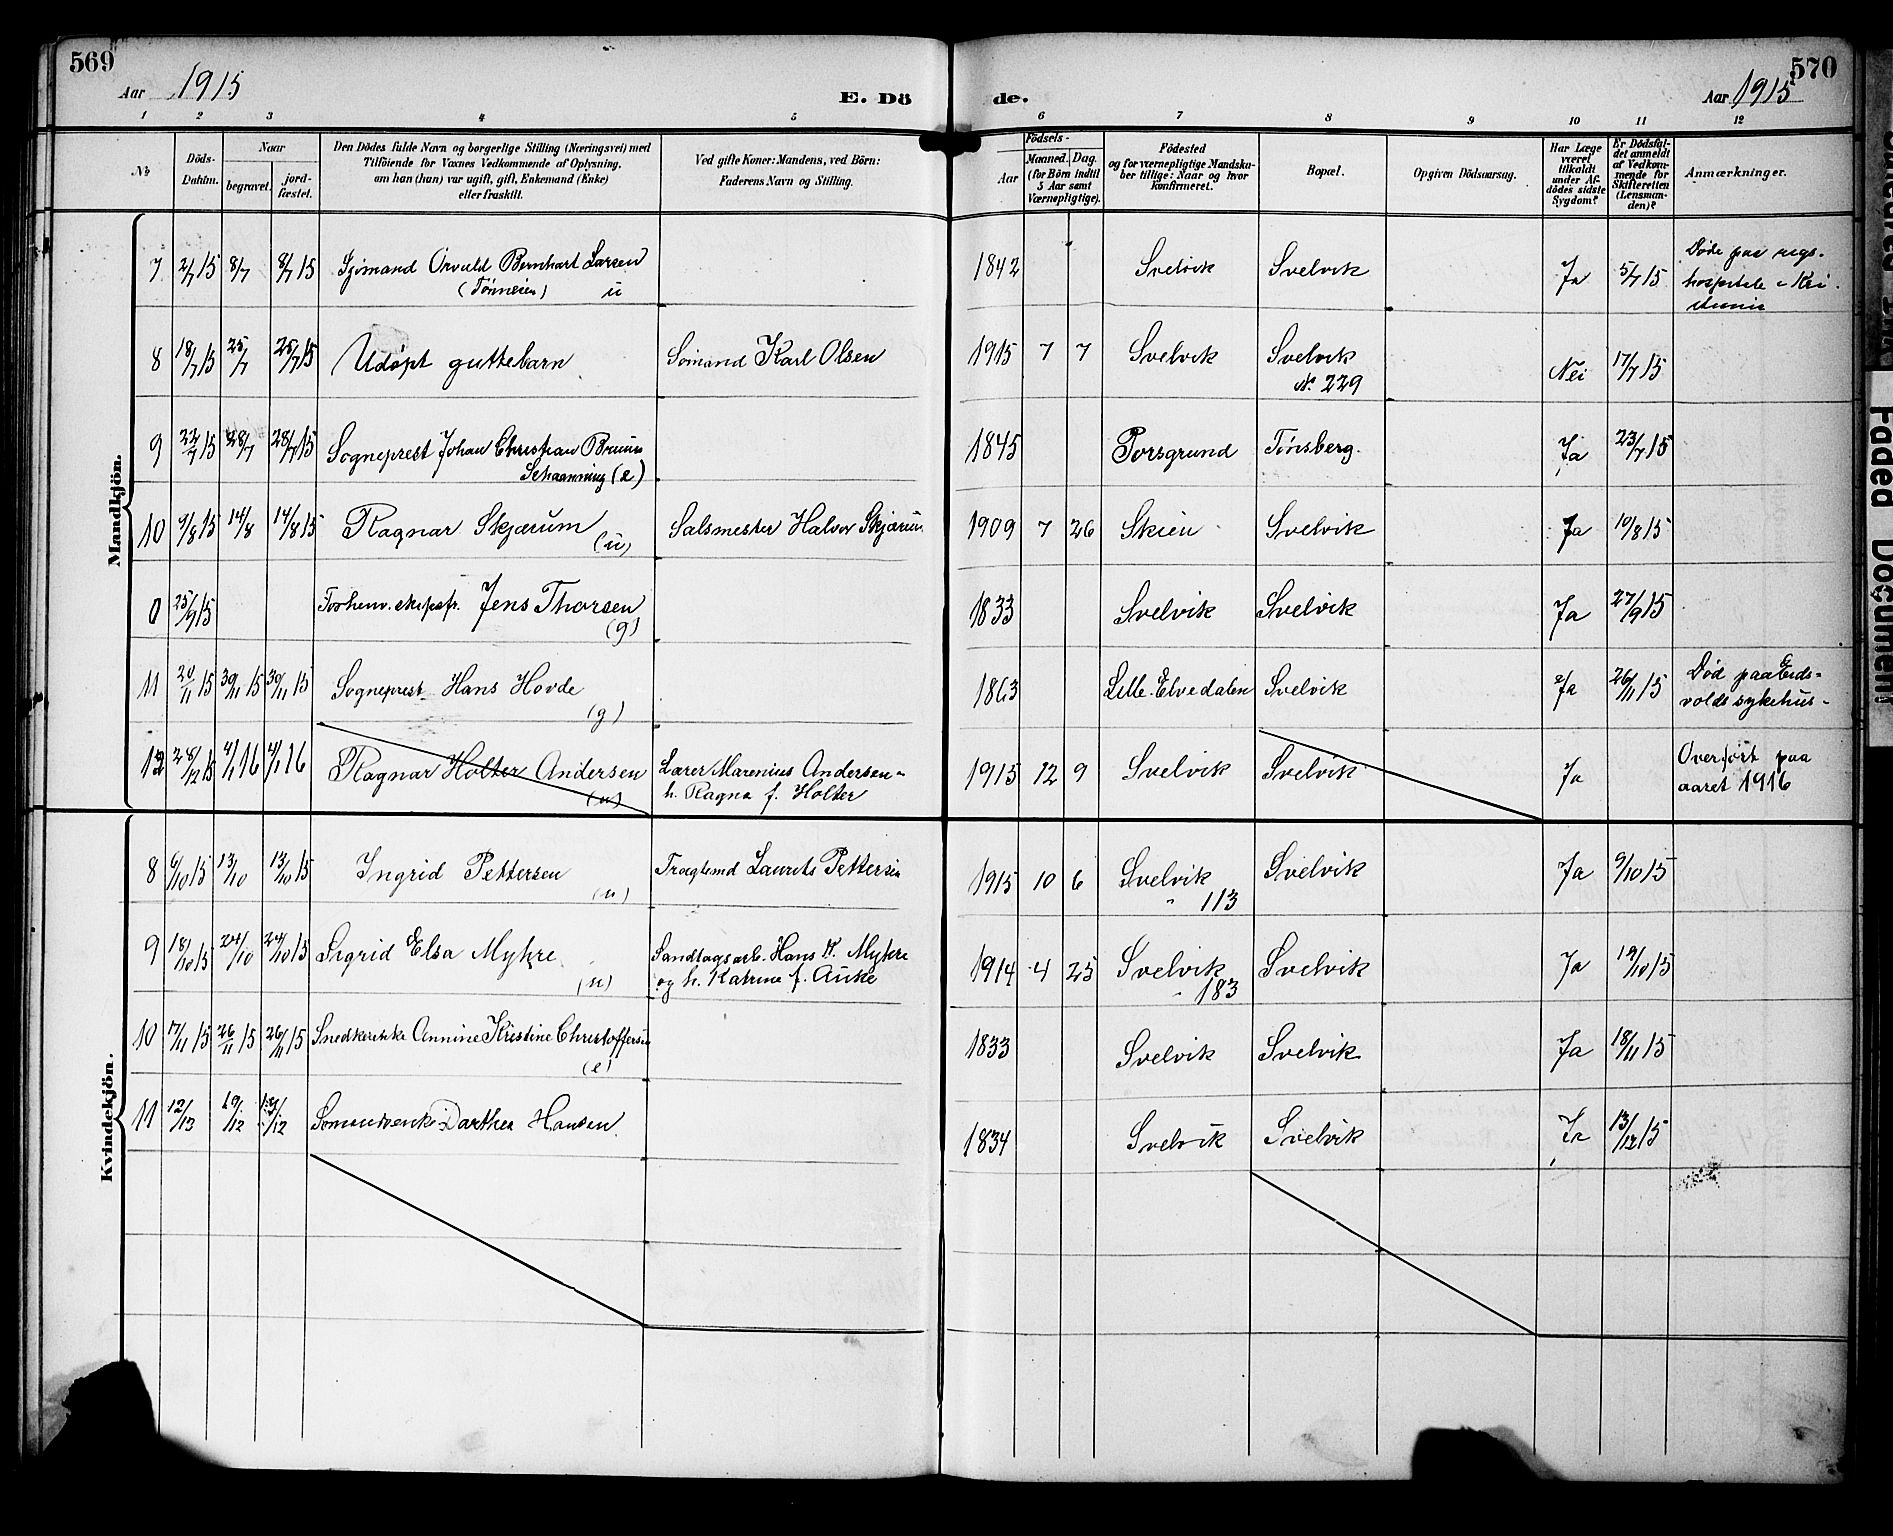 569
570
Aar 1915
E. Dö
de.
Aar 1915
1 2 3 4 5 6 7 8 9 10 11 12
No
Döds-
Datum.
Naar
begravet.
jord-
fæstet.
Den Dödes fulde Navn og borgerlige Stilling (Næringsvei) med
Tilföiende for Voxnes Vedkommende af Oplysning,
om han (hun) var ugift, gift, Enkemand (Enke)
eller fraskilt.
Ved gifte Koner: Mandens, ved Börn:
Faderens Navn og Stilling.
Födsels-
Aar
Maaned.
Dag.
(for Börn indtil
5 Aar samt
Værnepligtige).
Födested
og for værnepligtige Mandska-
ber tillige: Naar og hvor
konfirmeret.
Bopæl.
Opgiven Dödsaarsag.
Har Læge
været
tilkaldt
under Af-
dödes sidste
Sygdom?
Er Dödsfal-
det anmeldt
af Vedkom-
mende for
Skifteretten
(Lensman-
den)?
Anmærkninger.
Mandkjön.
7 2/7 15 8/7 8/7 15 Sjömand Orvald Bernhart Larsen 1842 Svelvik Svelvik Ja 5/7 15 Döde paa rigs-
(Tönnesen) u hospitale i Kri-
stiania
8 18/7 15 25/7 25/7 15 Udøpt guttebarn Sømand Karl Olsen 1915 7 7 Svelvik Svelvik Nei 17/7 15
N. 229
9 22/7 15 28/7 28/7 15 Sogneprest Johan Christian Bruun 1845 Porsgrund Tönsberg. Ja 23/7 15
Schaanning (e)
10 9/8 15 14/8 14/8 15 Ragnar Skjærum Salsmester Halvor Skjærum 1909 7 26 Skien Svelvik Ja 10/8 15
(u)
0 25/9 15 Forhenv. skipsf. Jens Thorsen 1833 Svelvik Svelvik Ja 27/9 15
(g)
11 20/11 15 30/11 15 30/11 15 Sogneprest Hans Hovde 1863 Lille-Elvedalen Svelvik Ja 26/11 15 Död paa Eids-
(g) volds sykehus-
12 28/12 15 4/1 16 4/1 16 Ragnar Holter Andersen Lærer Marenius Andersen- 1915 12 9 Svelvik Svelvik Ja Overført paa
(u) h. Ragna f. Holter aaret 1916
Kvindekjön.
8 6/10 15 13/10 13/10 15 Ingrid Pettersen Laurits Pettersen 1915 10 6 Svelvik Svelvik Ja 9/10 15
(u) " 113
9 18/10 15 24/10 24/10 15 Sigrid Elsa Myhre Sandtagsarb. Hans K. Myhre 1914 4 25 Svelvik Svelvik Ja 19/10 15
(u) og h. Katrine f. Auke " 183
10 17/11 15 26/11 15 26/11 15 Snedkerenke Annine Kristine Christoffersen 1833 Svelvik Svelvik Ja 18/11 15
(e)
11 12/13 19/12 19/12 Sömandsenke Darthea Hansen. 1834 Svelvik Svelvik Ja 13/12 15
Faded Document